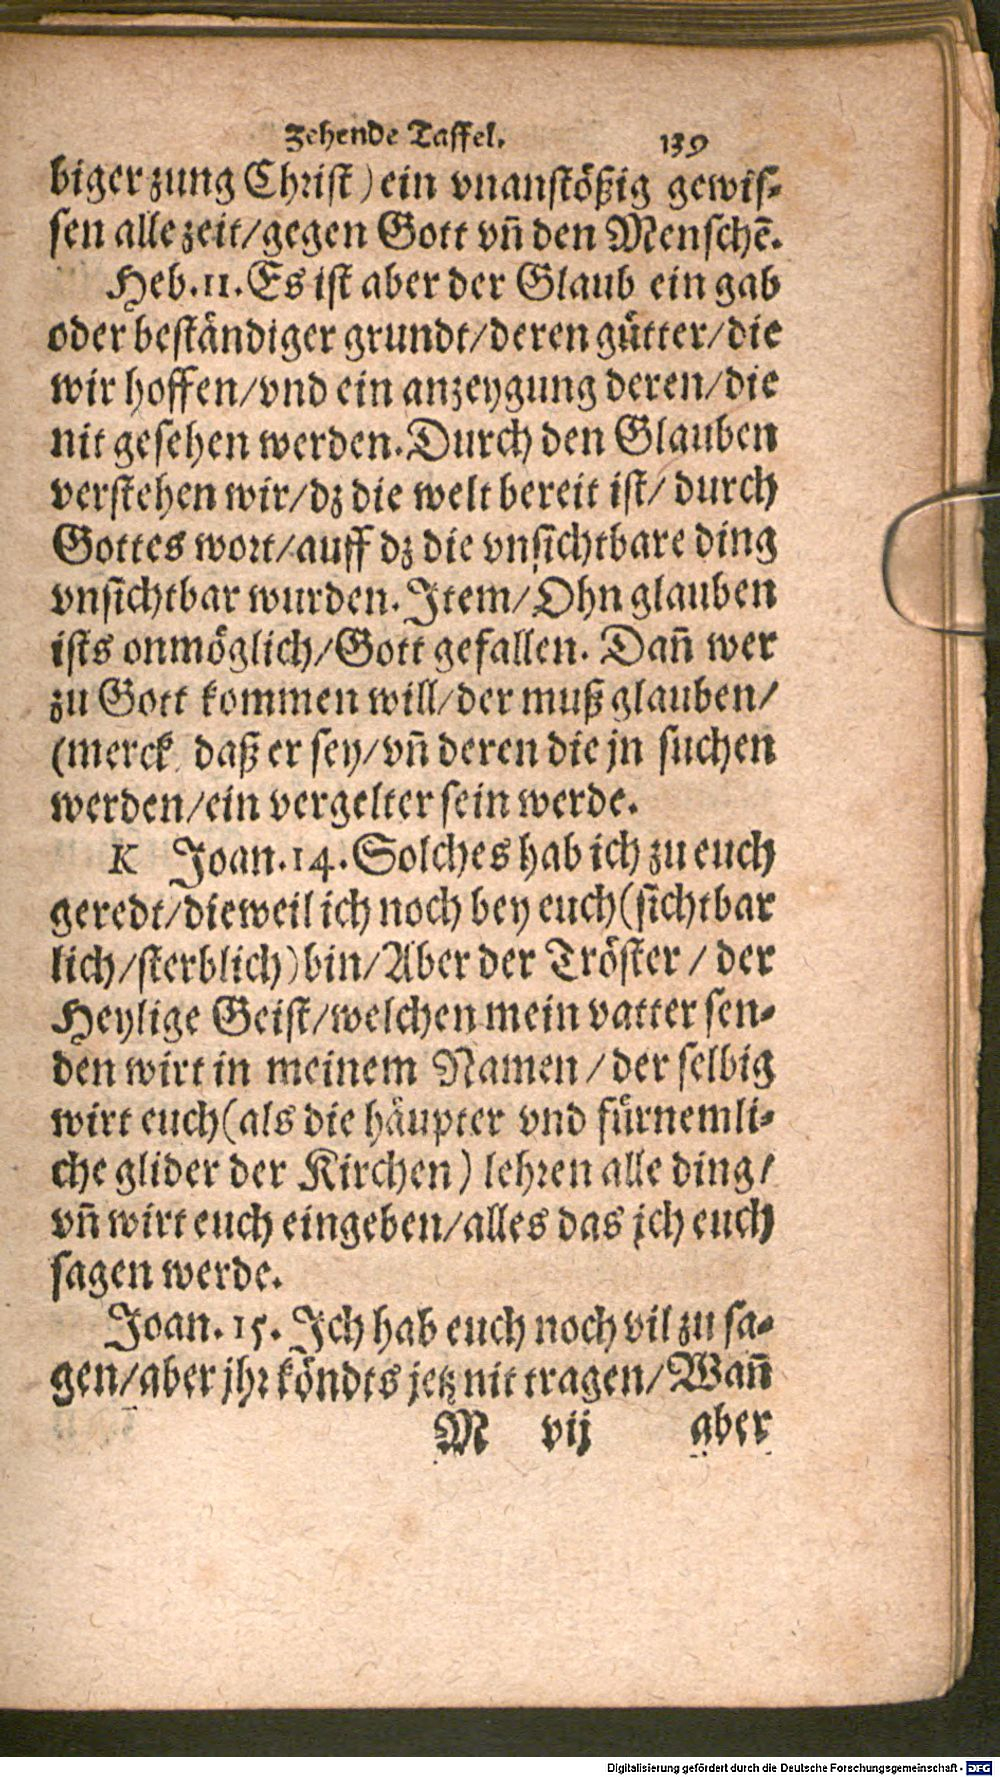 Zehende Taffel. 139
biger zung Christ) ein vnanstößig gewis-
sen alle zeit/gegen Gott vñ den Menschẽ.
Heb. 11. Es ist aber der Glaub ein gab
oder beständiger grundt/deren gůtter/die
wir hoffen/vnd ein anzeygung deren/die
nit gesehen werden. Durch den Glauben
verstehen wir/dz die welt bereit ist/ durch
Gottes wort/auff dz die vnsichtbare ding
vnsichtbar wurden. Item/Ohn glauben
ists onmöglich/Gott gefallen. Dañ wer
zu Gott kommen will/der muß glauben/
(merck daß er sey/vñ deren die jn suchen
werden/ein vergelter sein werde.
K Joan. 14. Solches hab ich zu euch
geredt/dieweil ich noch bey euch (sichtbar
lich/sterblich) bin/Aber der Tröster / der
Heylige Geist/welchen mein vatter sen-
den wirt in meinem Namen / der selbig
wirt euch (als die häupter vnd fůrnemli-
che glider der Kirchen) lehren alle ding/
vñ wirt euch eingeben/alles das jch euch
sagen werde.
Joan. 15. Ich hab euch noch vil zu sa-
gen/aber jhr köndts jetz nit tragen/Wañ
M vij aber
Digitalisierung gefördert durch die Deutsche Forschungsgemeinschaft - DFG